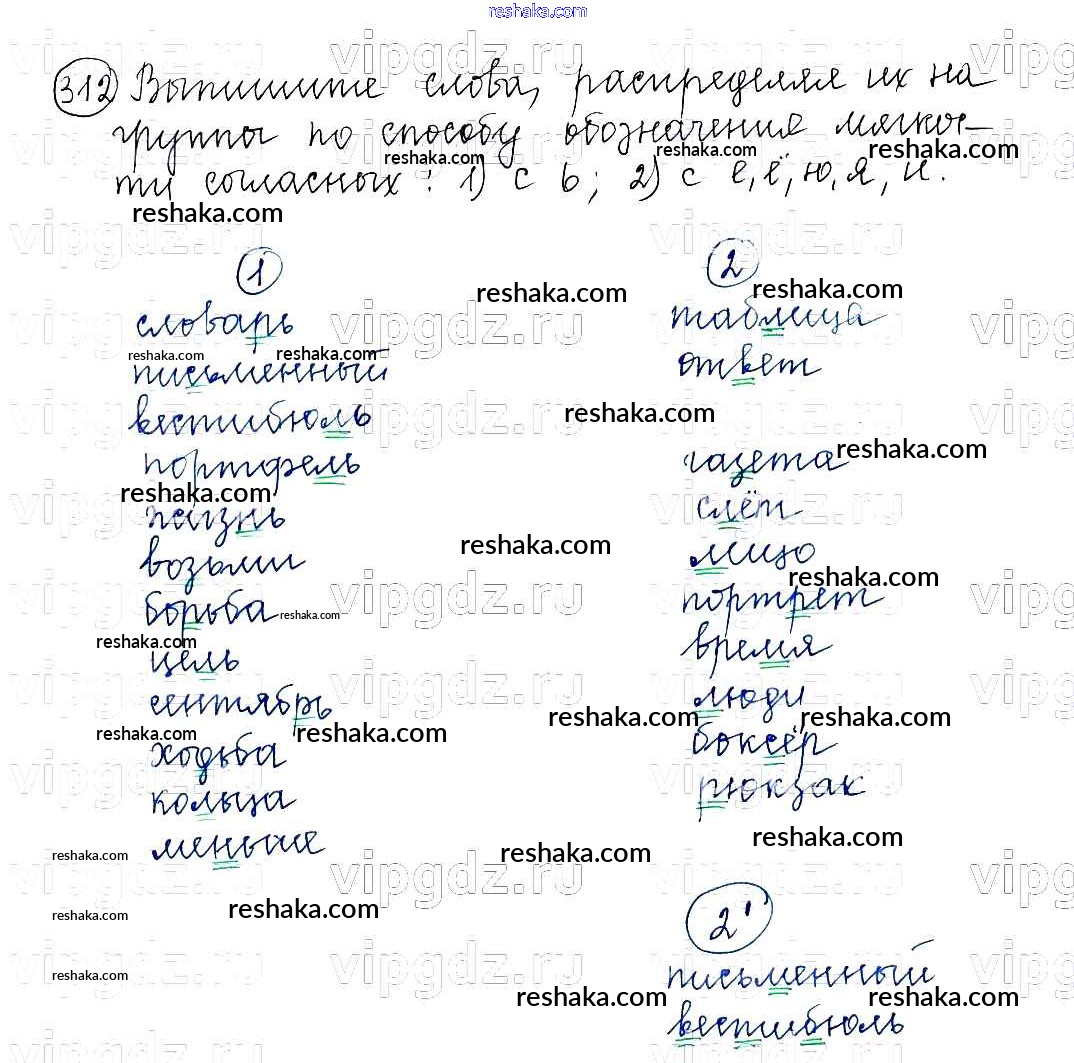 reshaka.com
312 Выпишите слова, распределяя их на
группы по способу обозначения мягкос-
ти согласных: 1) с ь; 2) с е, ё, ю, я, и.
1
словарь
письменный
вестибюль
портфель
жизнь
возьми
борьба
цель
сентябрь
ходьба
кольца
меньше
2
таблица
ответ
газета
слёт
лицо
портрет
время
люди
боксёр
рюкзак
2'
письменный
вестибюль
vipgdz.ru
reshaka.com